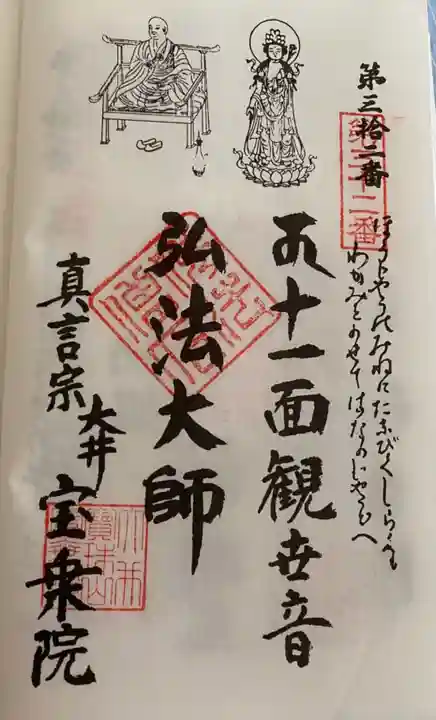 第三拾二番
第三十二番
ほうしやうのみねにたなびくしらくも
わがみをのせてはなのじやうどへ
十一面観世音
弘法大師
真言宗
大井
宝衆院